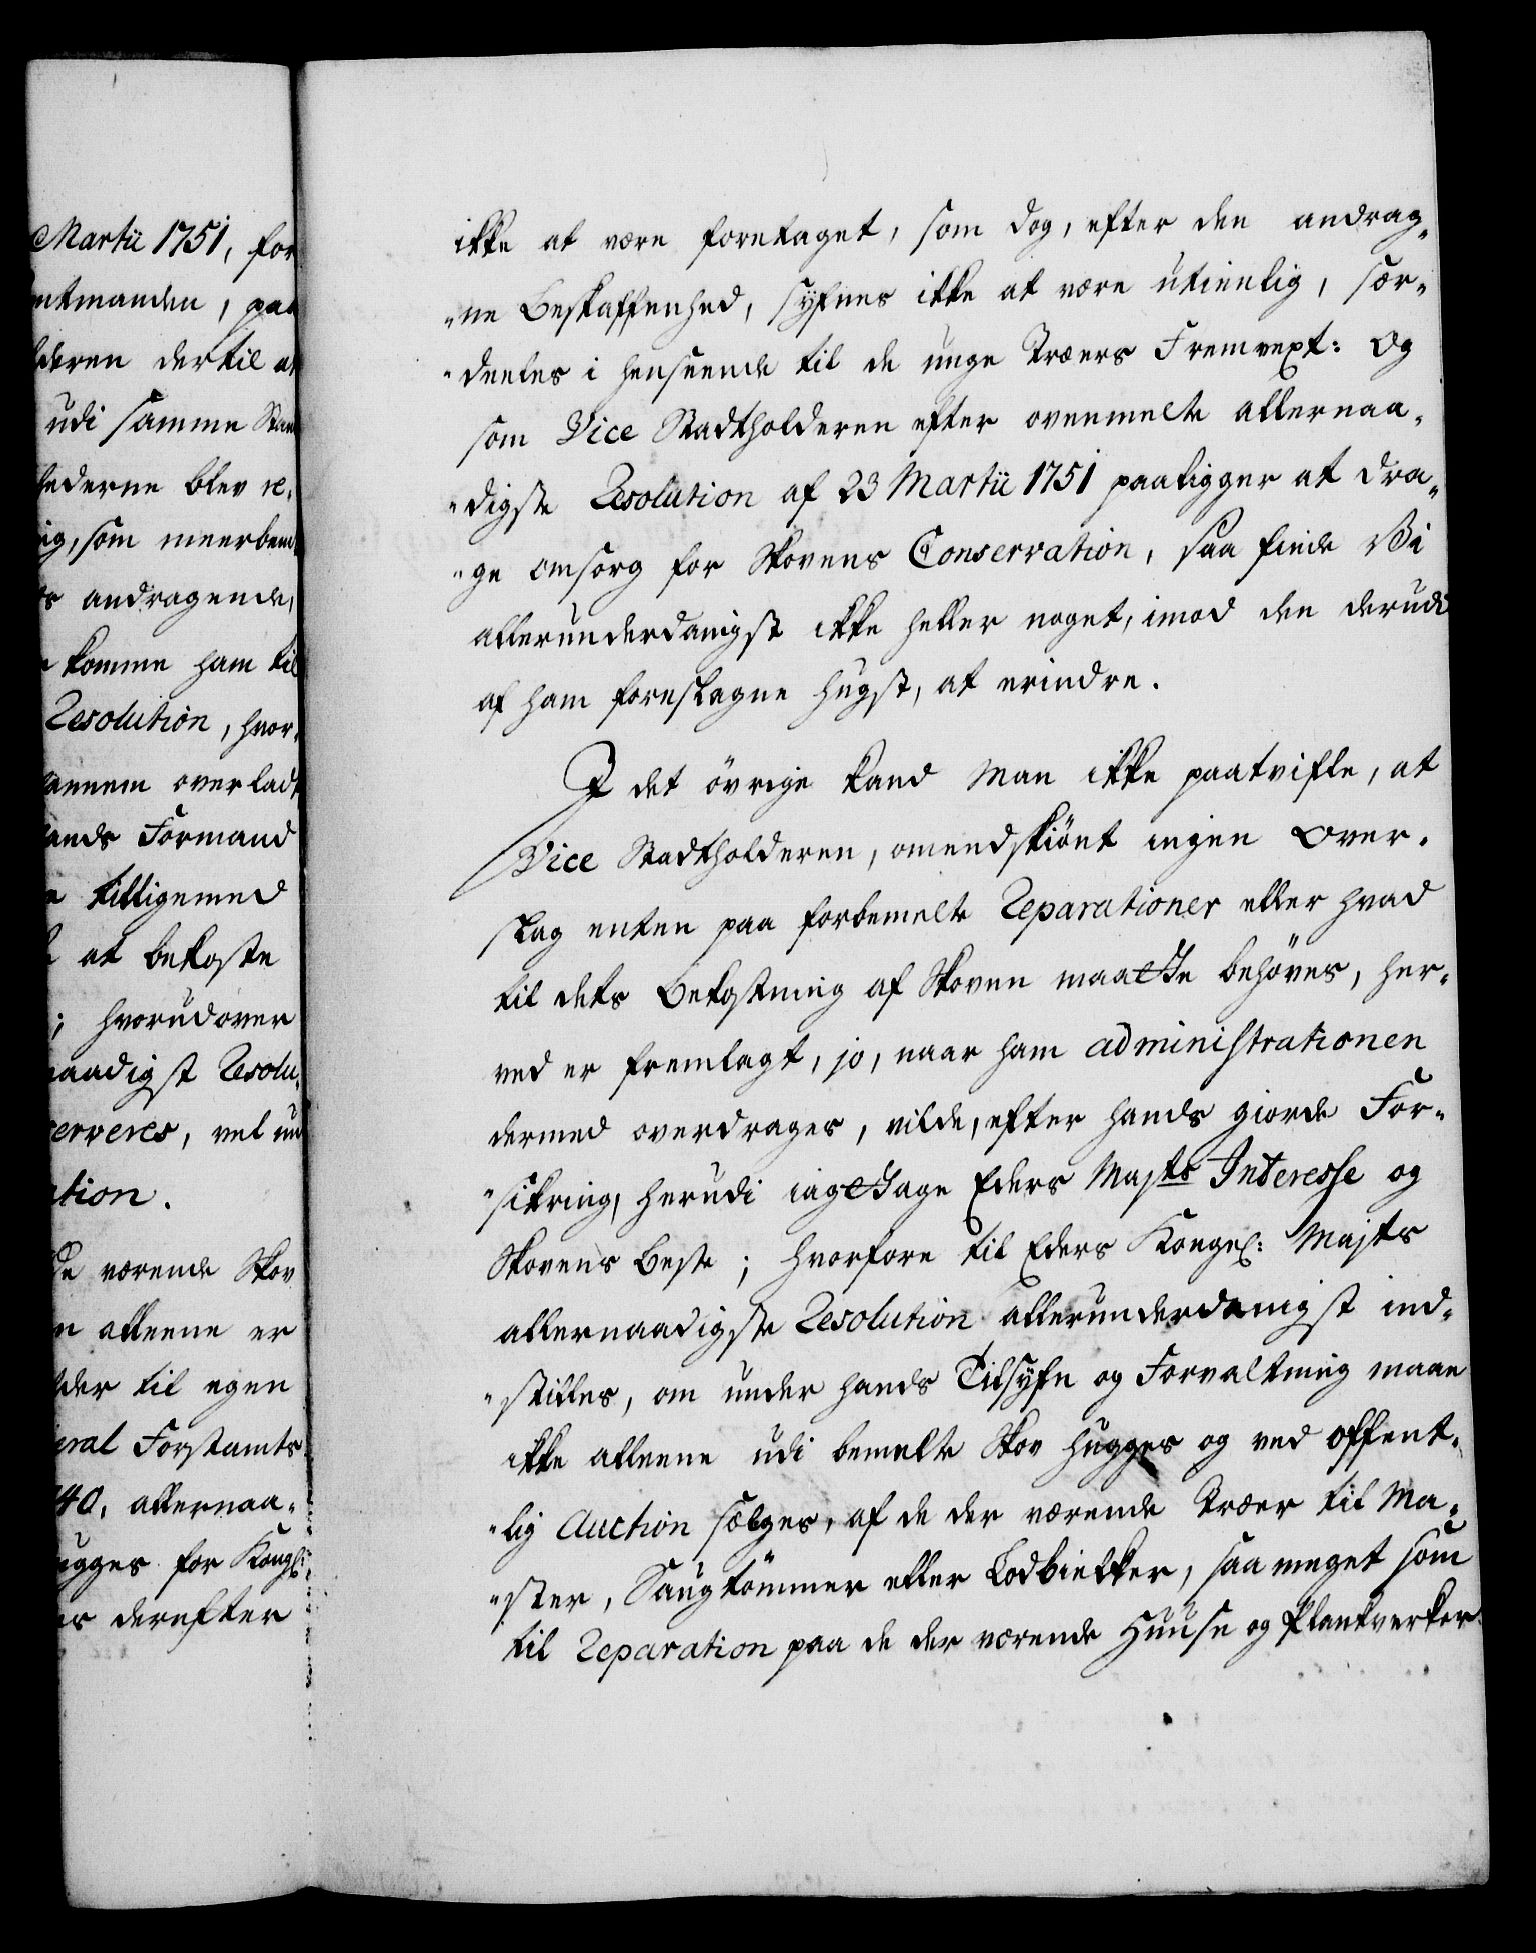 Martii 1751, for
ntmanden, paa
lderen dertil at
udi samme Stan
hederne blev re-
ig, som meerbem
s andragende,
komme ham til
Resolution, hvor-
annem overladt
ands Formand
tilligemed
at bekoste
; hvorudover
naadigst Resolu-
serveres, vel un
ation.
de værende Skov
n alleene er
lder til egen
eral Forstamts
40, allernaa-
ugges for Kongl:
es derefter
ikke at være foretaget, som dog, efter den andrag-
-ne Beskaffenhed, syfnes ikke at være utienlig, sær-
-deeles i henseende til de unge Træers Fremvext: Og
som Vice Stadtholderen efter ovenmelte allernaa-
-digste Resolution af 23 Martii 1751 paaligger at dra-
-ge omsorg for Skovens Conservation, saa finde Vi
allerunderdanigst ikke heller noget, imod den derudi
af ham foreslagne hugst, at erindre.
I det övrige kand Man ikke paatvifle, at
Vice Stadtholderen, omendskiönt ingen Over-
slag enten paa forbemelte Reparationer eller hvad
til dets Bekostning af Skoven maatte behöves, her-
ved er fremlagt, jo, naar ham administrationen
dermed overdrages, vilde, efter hands giorde For-
-sikring, herudi iagttage Eders Majts Interesse og
Skovens Beste; hvorfore til Eders Kongel: Majts
allernaadigste Resolution allerunderdanigst ind-
-stilles, om under hands Tilsyfn og Forvaltning maae
ikke alleene udi bemelte Skov hugges og ved offent-
-lig Auction sælges, af de der værende Træer til Ma-
-ster, Saugtömmer eller Lodbielker, saa meget som
til Reparation paa de der værende Huuse og Plankverker